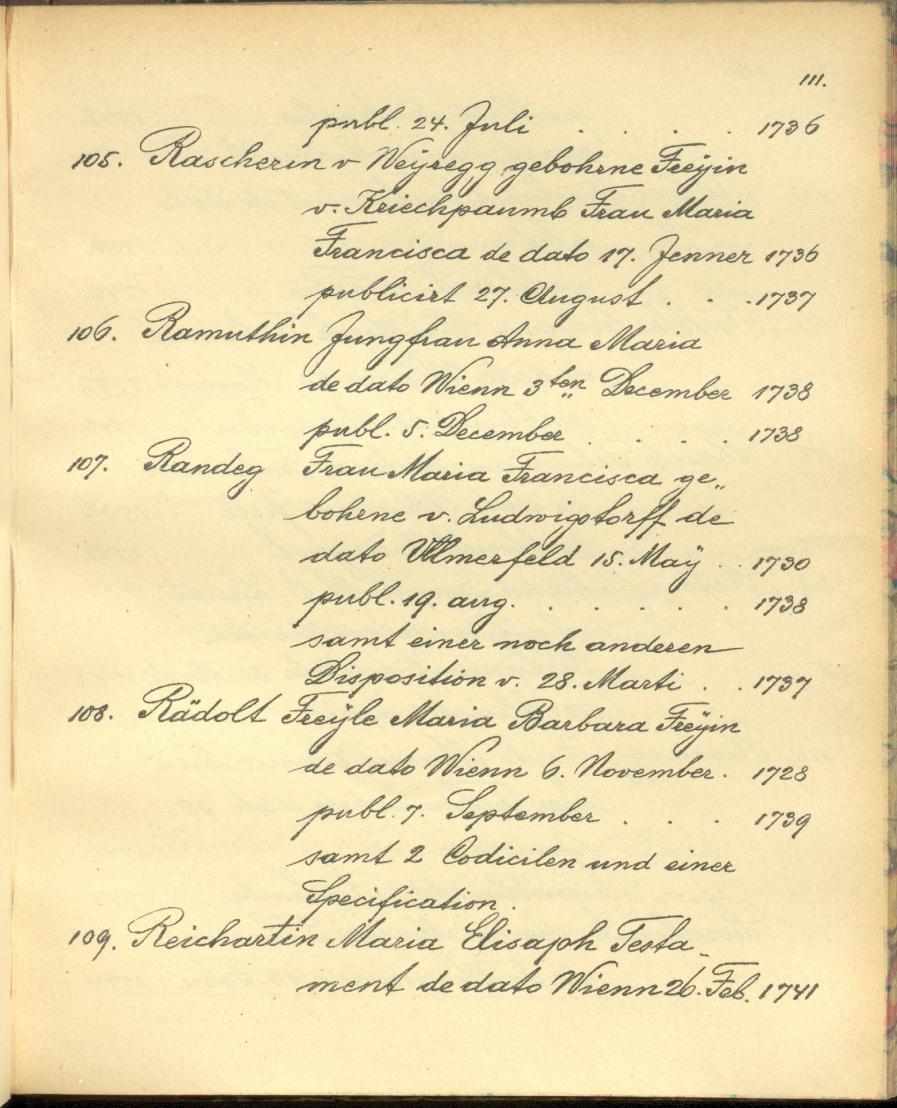 111.
publ. 24. Juli . . . . 1736
105. Rascherin v Weÿregg gebohrne Freÿin
v. Kriechpaumb Frau Maria
Francisca de dato 17. Jenner 1736
publicirt 27. August . . . 1737
106. Ramuthin Jungfrau Anna Maria
de dato Wienn 3ten December 1738
publ. 5. December . . . . 1738
107. Randeg Frau Maria Francisca ge„
bohrne v. Ludwigstorff de
dato Ullmerfeld 15. Maÿ . . 1730
publ. 19. aug. . . . . . 1738
samt einer noch anderen
Disposition v. 28. Marti . . 1737
108. Rädolt Freÿle Maria Barbara Freÿin
de dato Wienn 6. November. 1728
publ. 7. September . . . 1739
samt 2 Codicilen und einer
Specification.
109. Reichartin Maria Elisaph Testa„
ment de dato Wienn 26. Feb. 1741